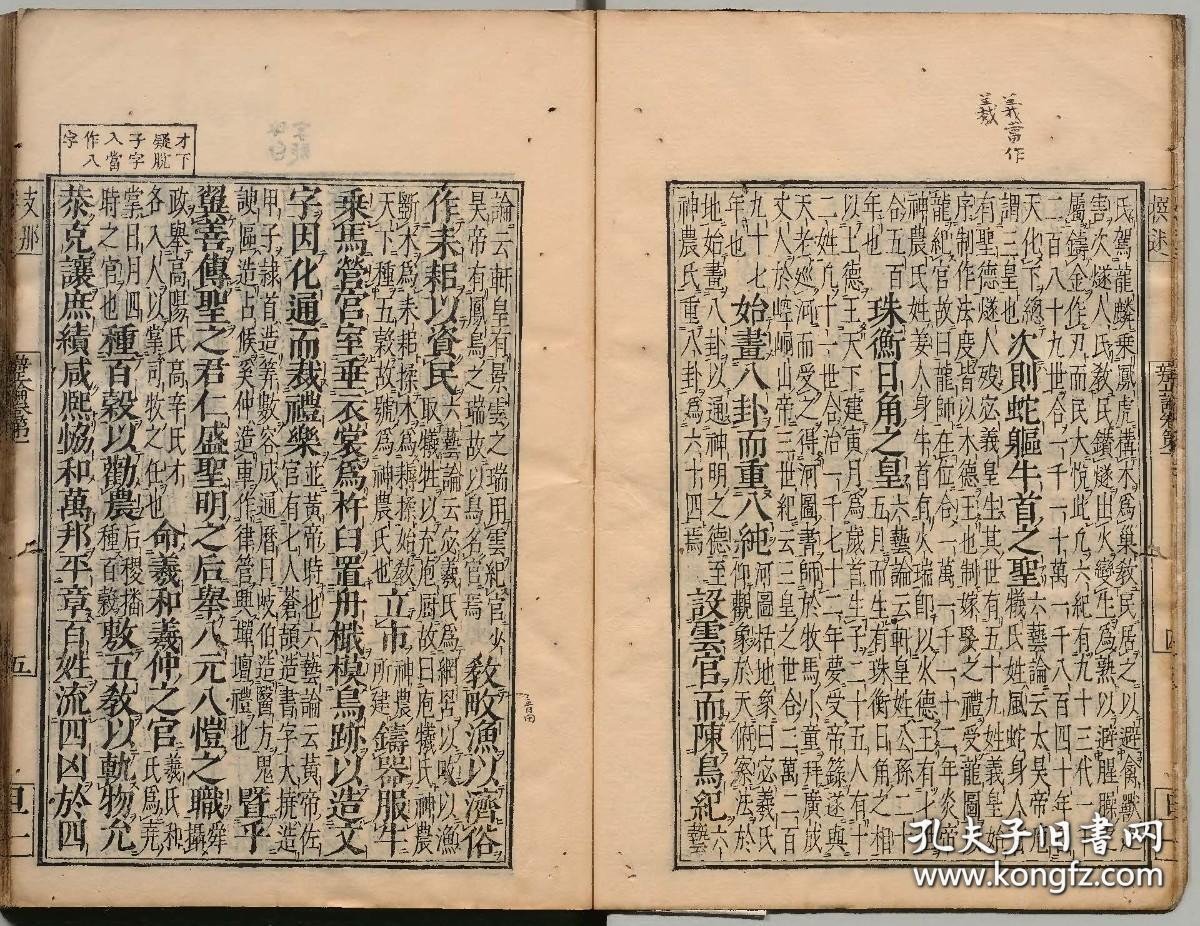 義當作
羲
氏駕龍麟乗鳳虎構木爲巢敎民居之以避禽獸
害次燧人氏敎民鑽燧出火變生爲熟以避腥臊
屬鑄金作刃而民大悅此九六紀有九十三代一
二百八十九世合一千一一十萬一千八百四十年
天化下總謂三皇也 次則蛇軀牛首之聖 六藝論云太昊帝庖犧氏姓風蛇身人首
有聖德燧人歿宓義皇生其世有五十九姓義皇始
序制作法度皆以木德王也制嫁娶之禮受龍圖以
龍紀官故曰龍師在位合一萬一千一十二年炎帝
神農氏姓姜人身牛首有火瑞即以火德王有七世
合五百年也 珠衡日角之皇 六藝論云軒皇姓公孫二十五月而生有珠衡日角之相
以土德王天下建寅月爲歲首生子二十五人有十
二姓了九十一世合治一千七十二年夢受帝錄遂與
天老巡河而受之得河圖書師於牧馬小童拜廣成
丈人於崆峒山帝三世紀云三皇之世合二萬二百
九十七年也 始畫八卦而重八純 河圖括地象曰宓羲氏仰觀象於天俯察法於
地始畫八卦以通神明之德至
神農氏重八卦爲六十四焉 設雲官而陳鳥紀 六藝
才下
疑脫
子字
入當
作八
字
論云軒皇有景雲之瑞用雲紀官少
昊帝有鳳鳥之瑞故以鳥名官焉 敎畋漁以濟俗
作耒耜以資民 六藝論云宓羲氏爲網罟以畋以漁取犧牲以充庖厨故曰庖犧氏神農
斵木爲耒耜揉木爲耨採始敎
天下種五穀故號爲神農氏也 立市 神農所建 鑄器服牛
乘馬營宫室垂衣裳爲杵臼置舟檝模鳥跡以造文
字因化通而裁禮樂 並黃帝時也六藝論云黃帝佐官有七人蒼頡造書字大撓造
甲子隷首造算數容成造曆日岐伯造醫方鬼
諛區造占候奚仲造車作律管興墠壇禮也 曁乎
翼善傳聖之君仁盛聖明之后舉八元八愷之職 舜攝
政舉高陽氏高辛氏才
各入人以掌司牧之任也 命羲和羲仲之官 羲氏和氏爲堯
掌日月四
時之官也 種百穀以勸農 后稷播種百穀 敷五敎以軌物允
恭克讓庶績咸熈恊和萬邦平章百姓流四凶於四
支那
五
孔夫子旧书网
www.kongfz.com